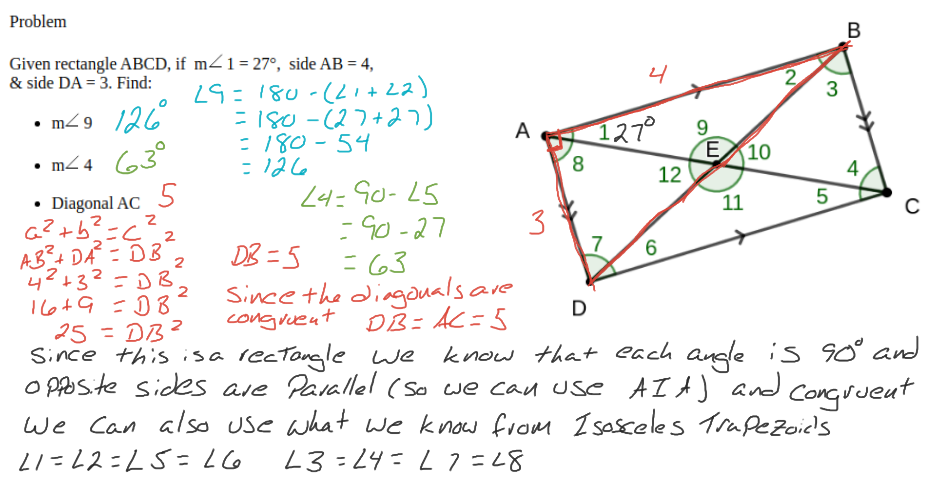 Problem
Given rectangle ABCD, if m∠1 = 27°, side AB = 4,
& side DA = 3. Find:
• m∠9 126°
• m∠4 63°
• Diagonal AC 5
∠9 = 180 - (∠1 + ∠2)
= 180 - (27 + 27)
= 180 - 54
= 126
∠4 = 90 - ∠5
= 90 - 27
= 63
a² + b² = c²
AB² + DA² = DB²
4² + 3² = DB²
16 + 9 = DB²
25 = DB²
DB = 5
Since the diagonals are
congruent DB = AC = 5
B
4
2
3
A
1 27°
9
E
10
8
12
4
3
11
5
C
7
6
D
Since this is a rectangle we know that each angle is 90° and
opposite sides are Parallel (so we can use AIA) and congruent
We can also use what we know from Isosceles Trapezoids
∠1 = ∠2 = ∠5 = ∠6 ∠3 = ∠4 = ∠7 = ∠8